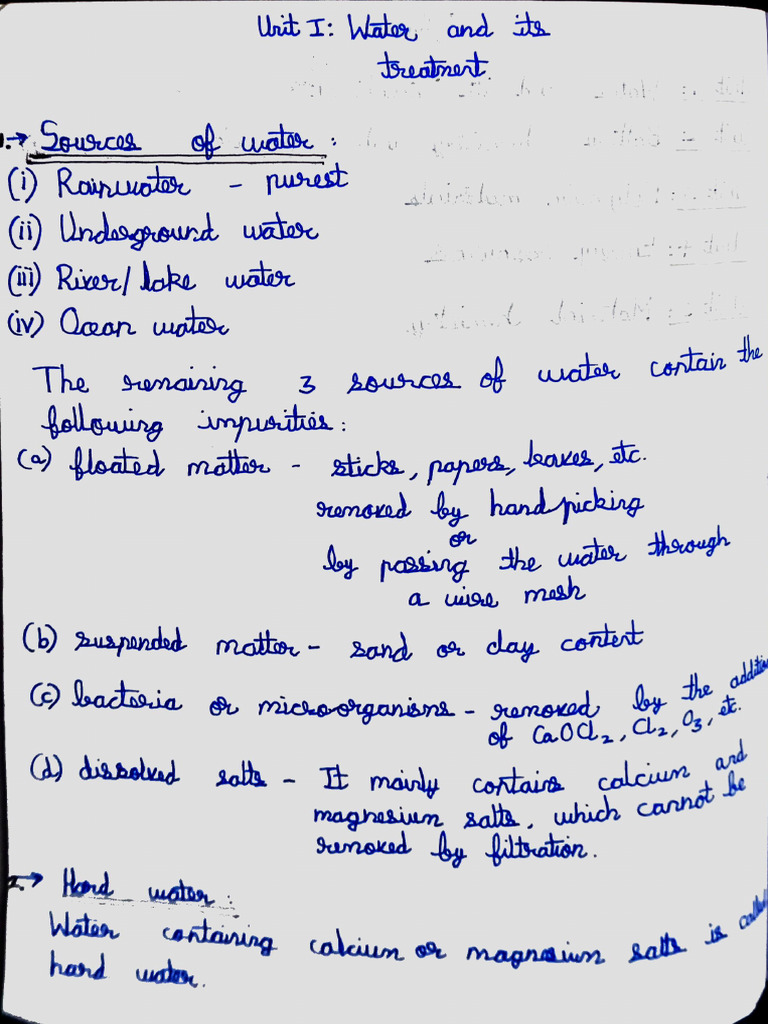 Unit I: Water and its
treatment
1.→ Sources of water:
(i) Rainwater - purest
(ii) Underground water
(iii) River/lake water
(iv) Ocean water
The remaining 3 sources of water contain the
following impurities:
(a) floated matter - sticks, papers, leaves, etc.
removed by hand picking
or
by passing the water through
a wire mesh
(b) suspended matter - sand or clay content
(c) bacteria or micro-organisms - removed by the addition
of CaOCl2, Cl2, O3, etc.
(d) dissolved salts - It mainly contains calcium and
magnesium salts, which cannot be
removed by filtration.
2.→ Hard water:
Water containing calcium or magnesium salts is called
hard water.